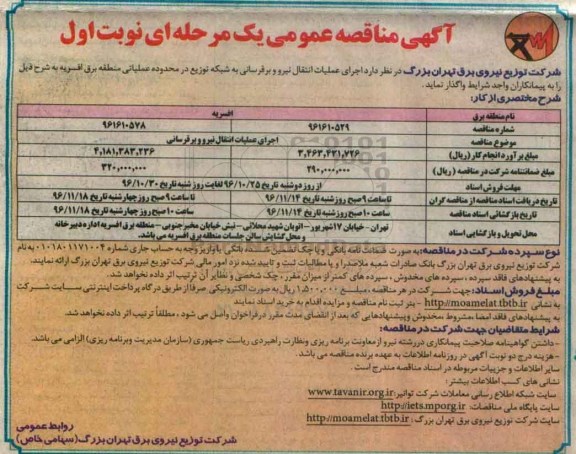 آگهی مناقصه عمومی یک مرحله ای نوبت اول
شرکت توزیع نیروی برق تهران بزرگ در نظر دارد اجرای عملیات انتقال نیرو و برقرسانی به شبکه توزیع در محدوده عملیاتی منطقه برق افسریه به شرح ذیل
را به پیمانکاران واجد شرایط واگذار نماید.
شرح مختصری از کار:
نام منطقه برق افسریه
شماره مناقصه ۹۶۱۶۱۰۵۲۹ ۹۶۱۶۱۰۵۷۸
موضوع مناقصه اجرای عملیات انتقال نیرو و برقرسانی
مبلغ برآورد انجام کار (ریال) ۳,۴۶۳,۴۲۱,۷۲۶ ۴,۱۸۱,۳۸۳,۲۳۶
مبلغ ضمانتنامه شرکت در مناقصه (ریال) ۲۹۰,۰۰۰,۰۰۰ ۳۲۰,۰۰۰,۰۰۰
مهلت فروش اسناد از روز دوشنبه تاریخ ۹۶/۱۰/۲۵ لغایت روز شنبه تاریخ ۹۶/۱۰/۳۰
تاریخ دریافت اسناد مناقصه از مناقصه گران تا ساعت ۹ صبح روز شنبه تاریخ ۹۶/۱۱/۱۴ تا ساعت ۹ صبح روز چهارشنبه تاریخ ۹۶/۱۱/۱۸
تاریخ بازگشائی اسناد مناقصه ساعت ۱۰ صبح روز شنبه تاریخ ۹۶/۱۱/۱۴ ساعت ۱۰ صبح روز چهارشنبه تاریخ ۹۶/۱۱/۱۸
محل تحویل و بازگشایی اسناد تهران - خیابان ۱۷ شهریور - اتوبان شهید محلاتی - نبش خیابان مخبر جنوبی - منطقه برق افسریه اداره دبیرخانه
و محل گشایش سالن جلسات منطقه برق افسریه می باشد.
نوع سپرده شرکت در مناقصه: به صورت ضمانت نامه بانکی و یا چک تضمین شده بانکی یا واریز وجه به حساب جاری شماره ۰۱۰۱۸۰۱۱۷۱۰۰۴ به نام
شرکت توزیع نیروی برق تهران بزرگ بانک صادرات شعبه ملاصدرا و یا مطالبات ثبت و تایید شده نزد امور مالی شرکت توزیع نیروی برق تهران بزرگ ارائه نمایند.
به پیشنهادهای فاقد سپرده، سپرده های مخدوش، سپرده های کمتر از میزان مقرر، چک شخصی و نظایر آن ترتیب اثر داده نخواهد شد.
مبلغ فروش اسناد: جهت شرکت در هر مناقصه، مبلغ ۱,۵۰۰,۰۰۰ ریال به صورت الکترونیکی صرفا از طریق درگاه پرداخت اینترنتی سایت شرکت
به نشانی http://moamelat.tbtb.ir - بنر ثبت نام مناقصه و مزایده اقدام به خرید اسناد نمایند
به پیشنهادهای فاقد امضا، مشروط، مخدوش و پیشنهادهایی که بعد از انقضای مدت مقرر در فراخوان واصل می شود، مطلقاً ترتیب اثر داده نخواهد شد.
شرایط متقاضیان جهت شرکت در مناقصه:
- داشتن گواهینامه صلاحیت پیمانکاری در رشته نیرو از معاونت برنامه ریزی و نظارت راهبردی ریاست جمهوری (سازمان مدیریت و برنامه ریزی) الزامی می باشد.
- هزینه درج دو نوبت آگهی در روزنامه اطلاعات به عهده برنده مناقصه می باشد.
سایر اطلاعات و جزییات مربوطه در اسناد مناقصه مندرج است.
نشانی های کسب اطلاعات بیشتر:
سایت شبکه اطلاع رسانی معاملات شرکت توانیر: www.tavanir.org.ir
سایت پایگاه ملی مناقصات: http://iets.mporg.ir
سایت شرکت توزیع نیروی برق تهران بزرگ: http://moamelat.tbtb.ir
روابط عمومی
شرکت توزیع نیروی برق تهران بزرگ (سهامی خاص)